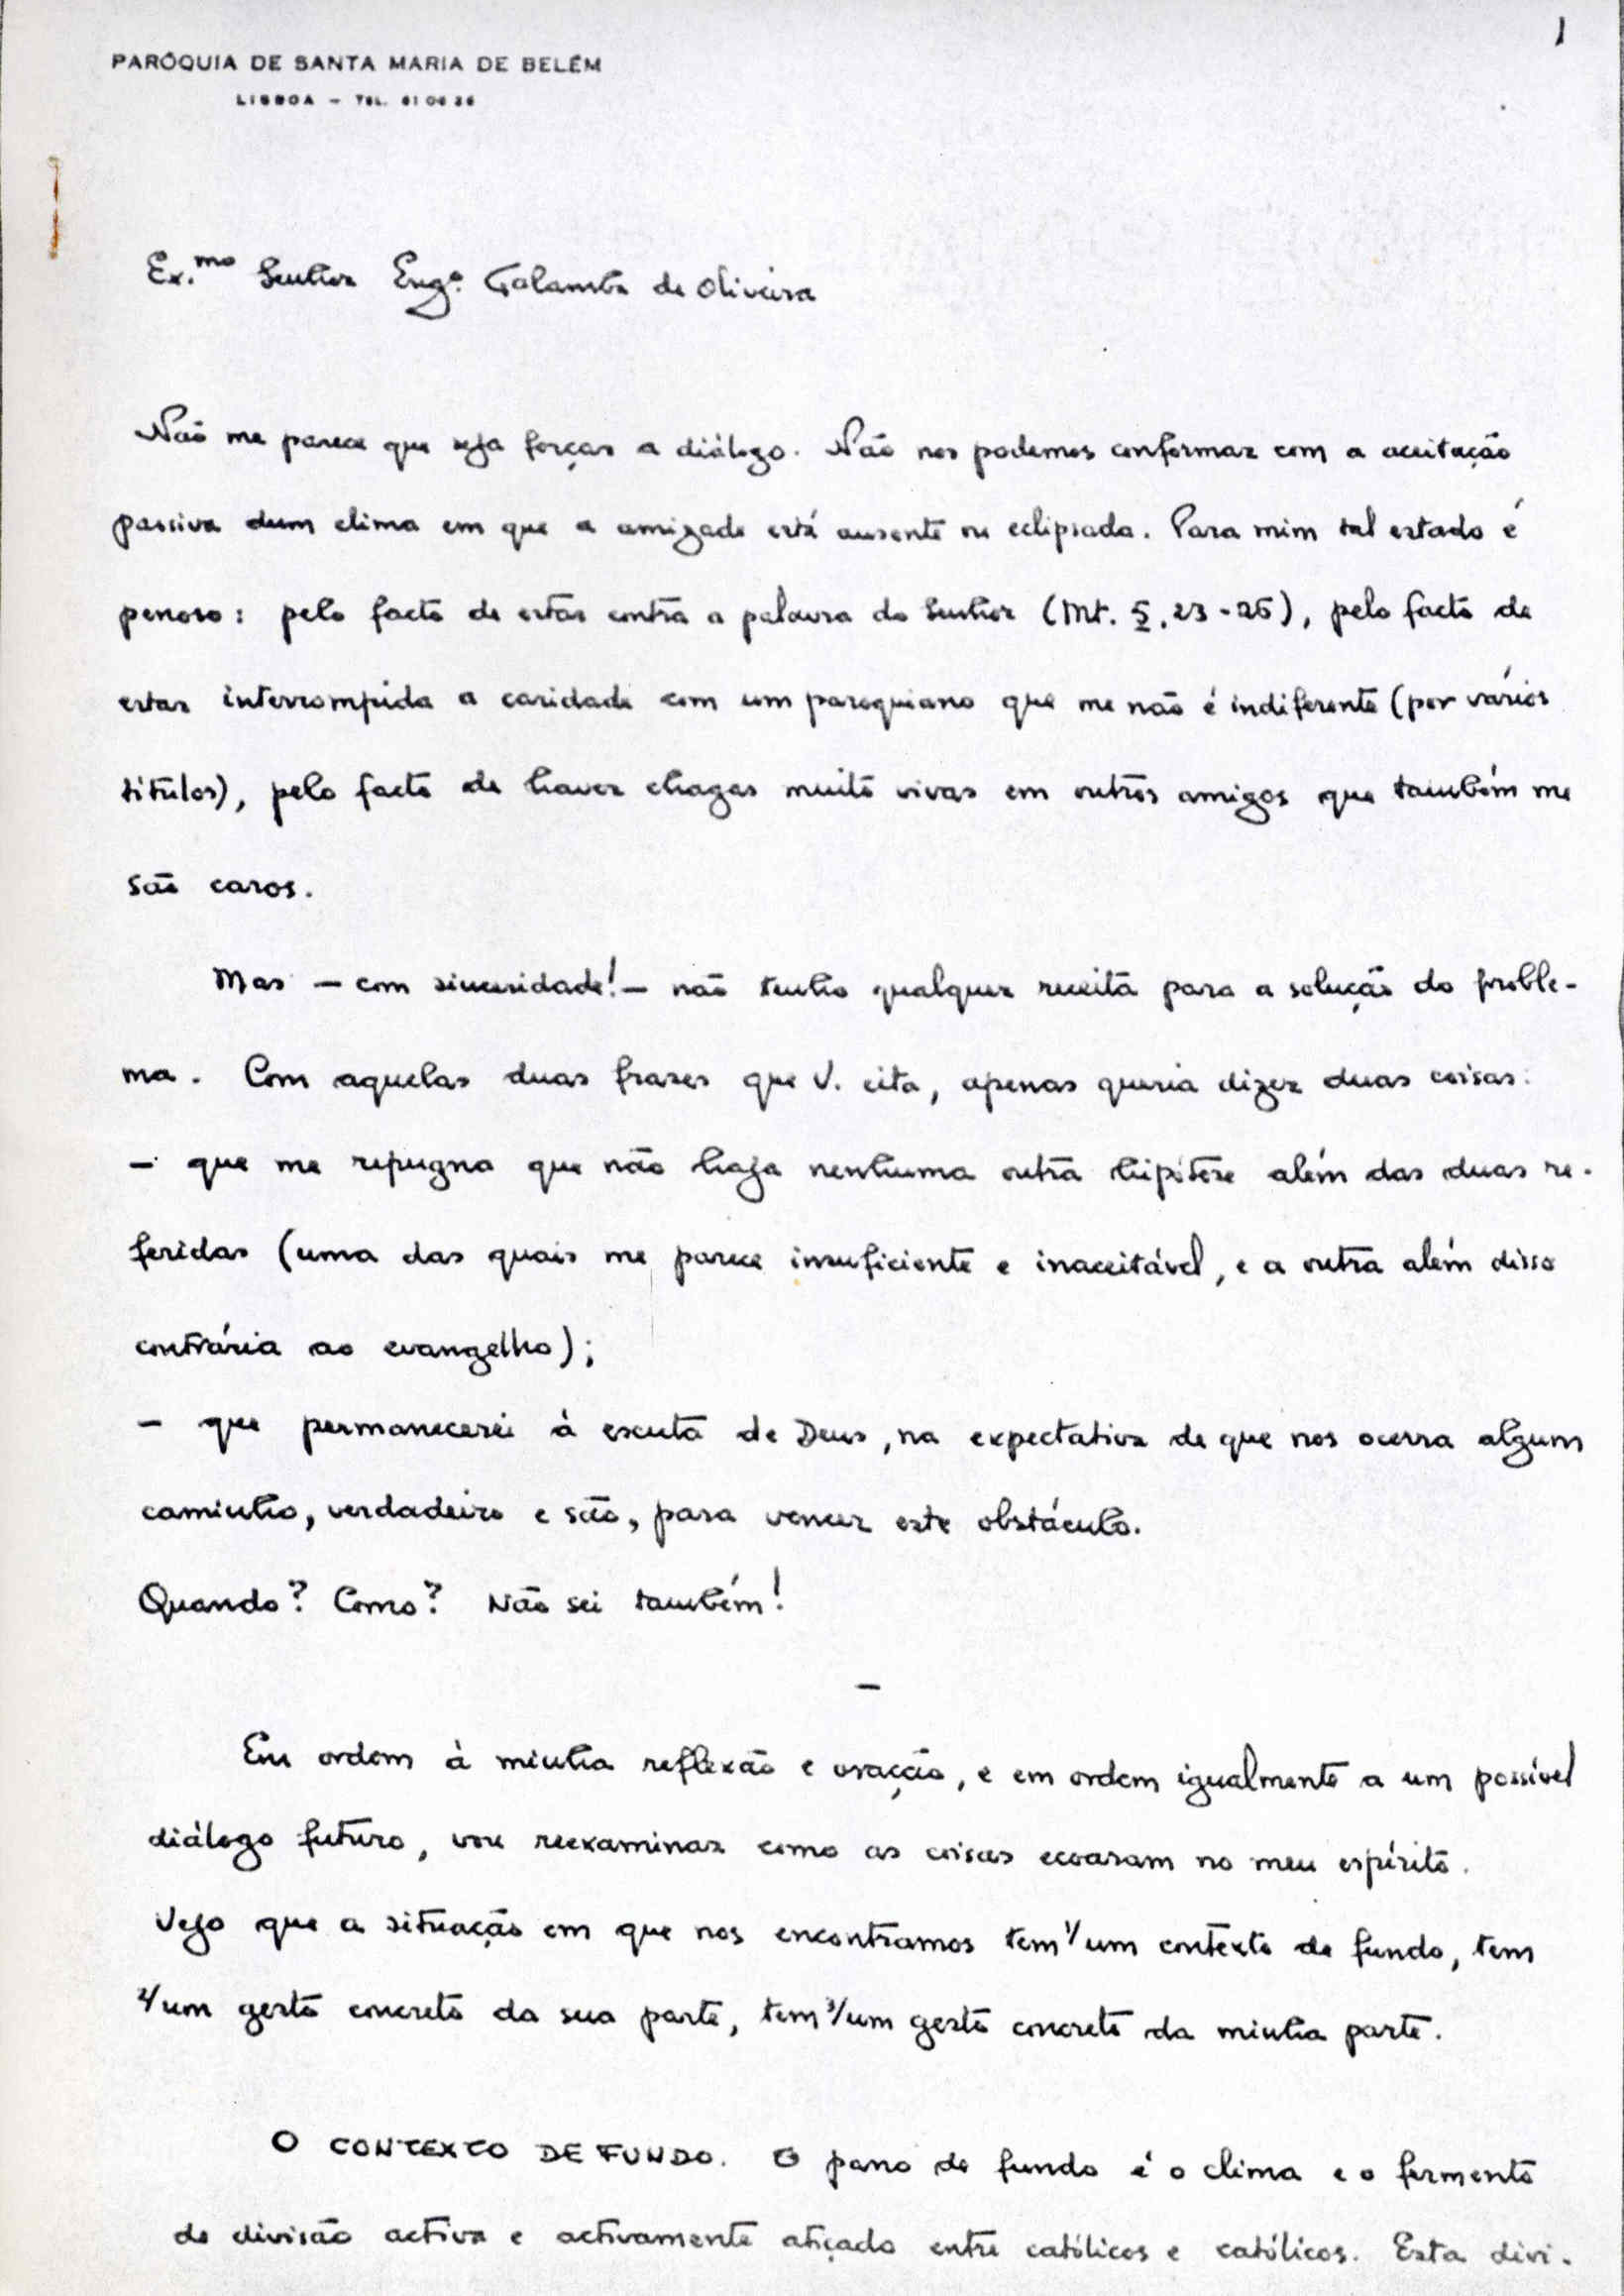 1
PARÓQUIA DE SANTA MARIA DE BELÉM
LISBOA - TEL. 61 06 26
Ex.mo Senhor Eng.º Galamba de Oliveira
Não me parece que seja forçar o diálogo. Não nos podemos conformar com a aceitação
passiva dum clima em que a amizade está ausente ou eclipsada. Para mim tal estado é
penoso: pelo facto de estar contra a palavra do Senhor (Mt. 5, 23-25), pelo facto de
estar interrompida a caridade com um paroquiano que me não é indiferente (por vários
títulos), pelo facto de haver chagas muito vivas em outros amigos que também me
são caros.
Mas - com sinceridade! - não tenho qualquer receita para a solução do proble-
ma. Com aquelas duas frases que V. cita, apenas queria dizer duas coisas:
- que me repugna que não haja nenhuma outra hipótese além das duas re-
feridas (uma das quais me parece insuficiente e inaceitável, e a outra além disso
contrária ao evangelho);
- que permanecerei à escuta de Deus, na expectativa de que nos ocorra algum
caminho, verdadeiro e são, para vencer este obstáculo.
Quando? Como? Não sei também!
-
Em ordem à minha reflexão e oração, e em ordem igualmente a um possível
diálogo futuro, vou reexaminar como as coisas ecoaram no meu espírito.
Vejo que a situação em que nos encontramos tem 1/ um contexto de fundo, tem
2/ um gesto concreto da sua parte, tem 3/ um gesto concreto da minha parte.
O CONTEXTO DE FUNDO. O pano de fundo é o clima e o fermento
de divisão activa e activamente atiçado entre católicos e católicos. Esta divi-